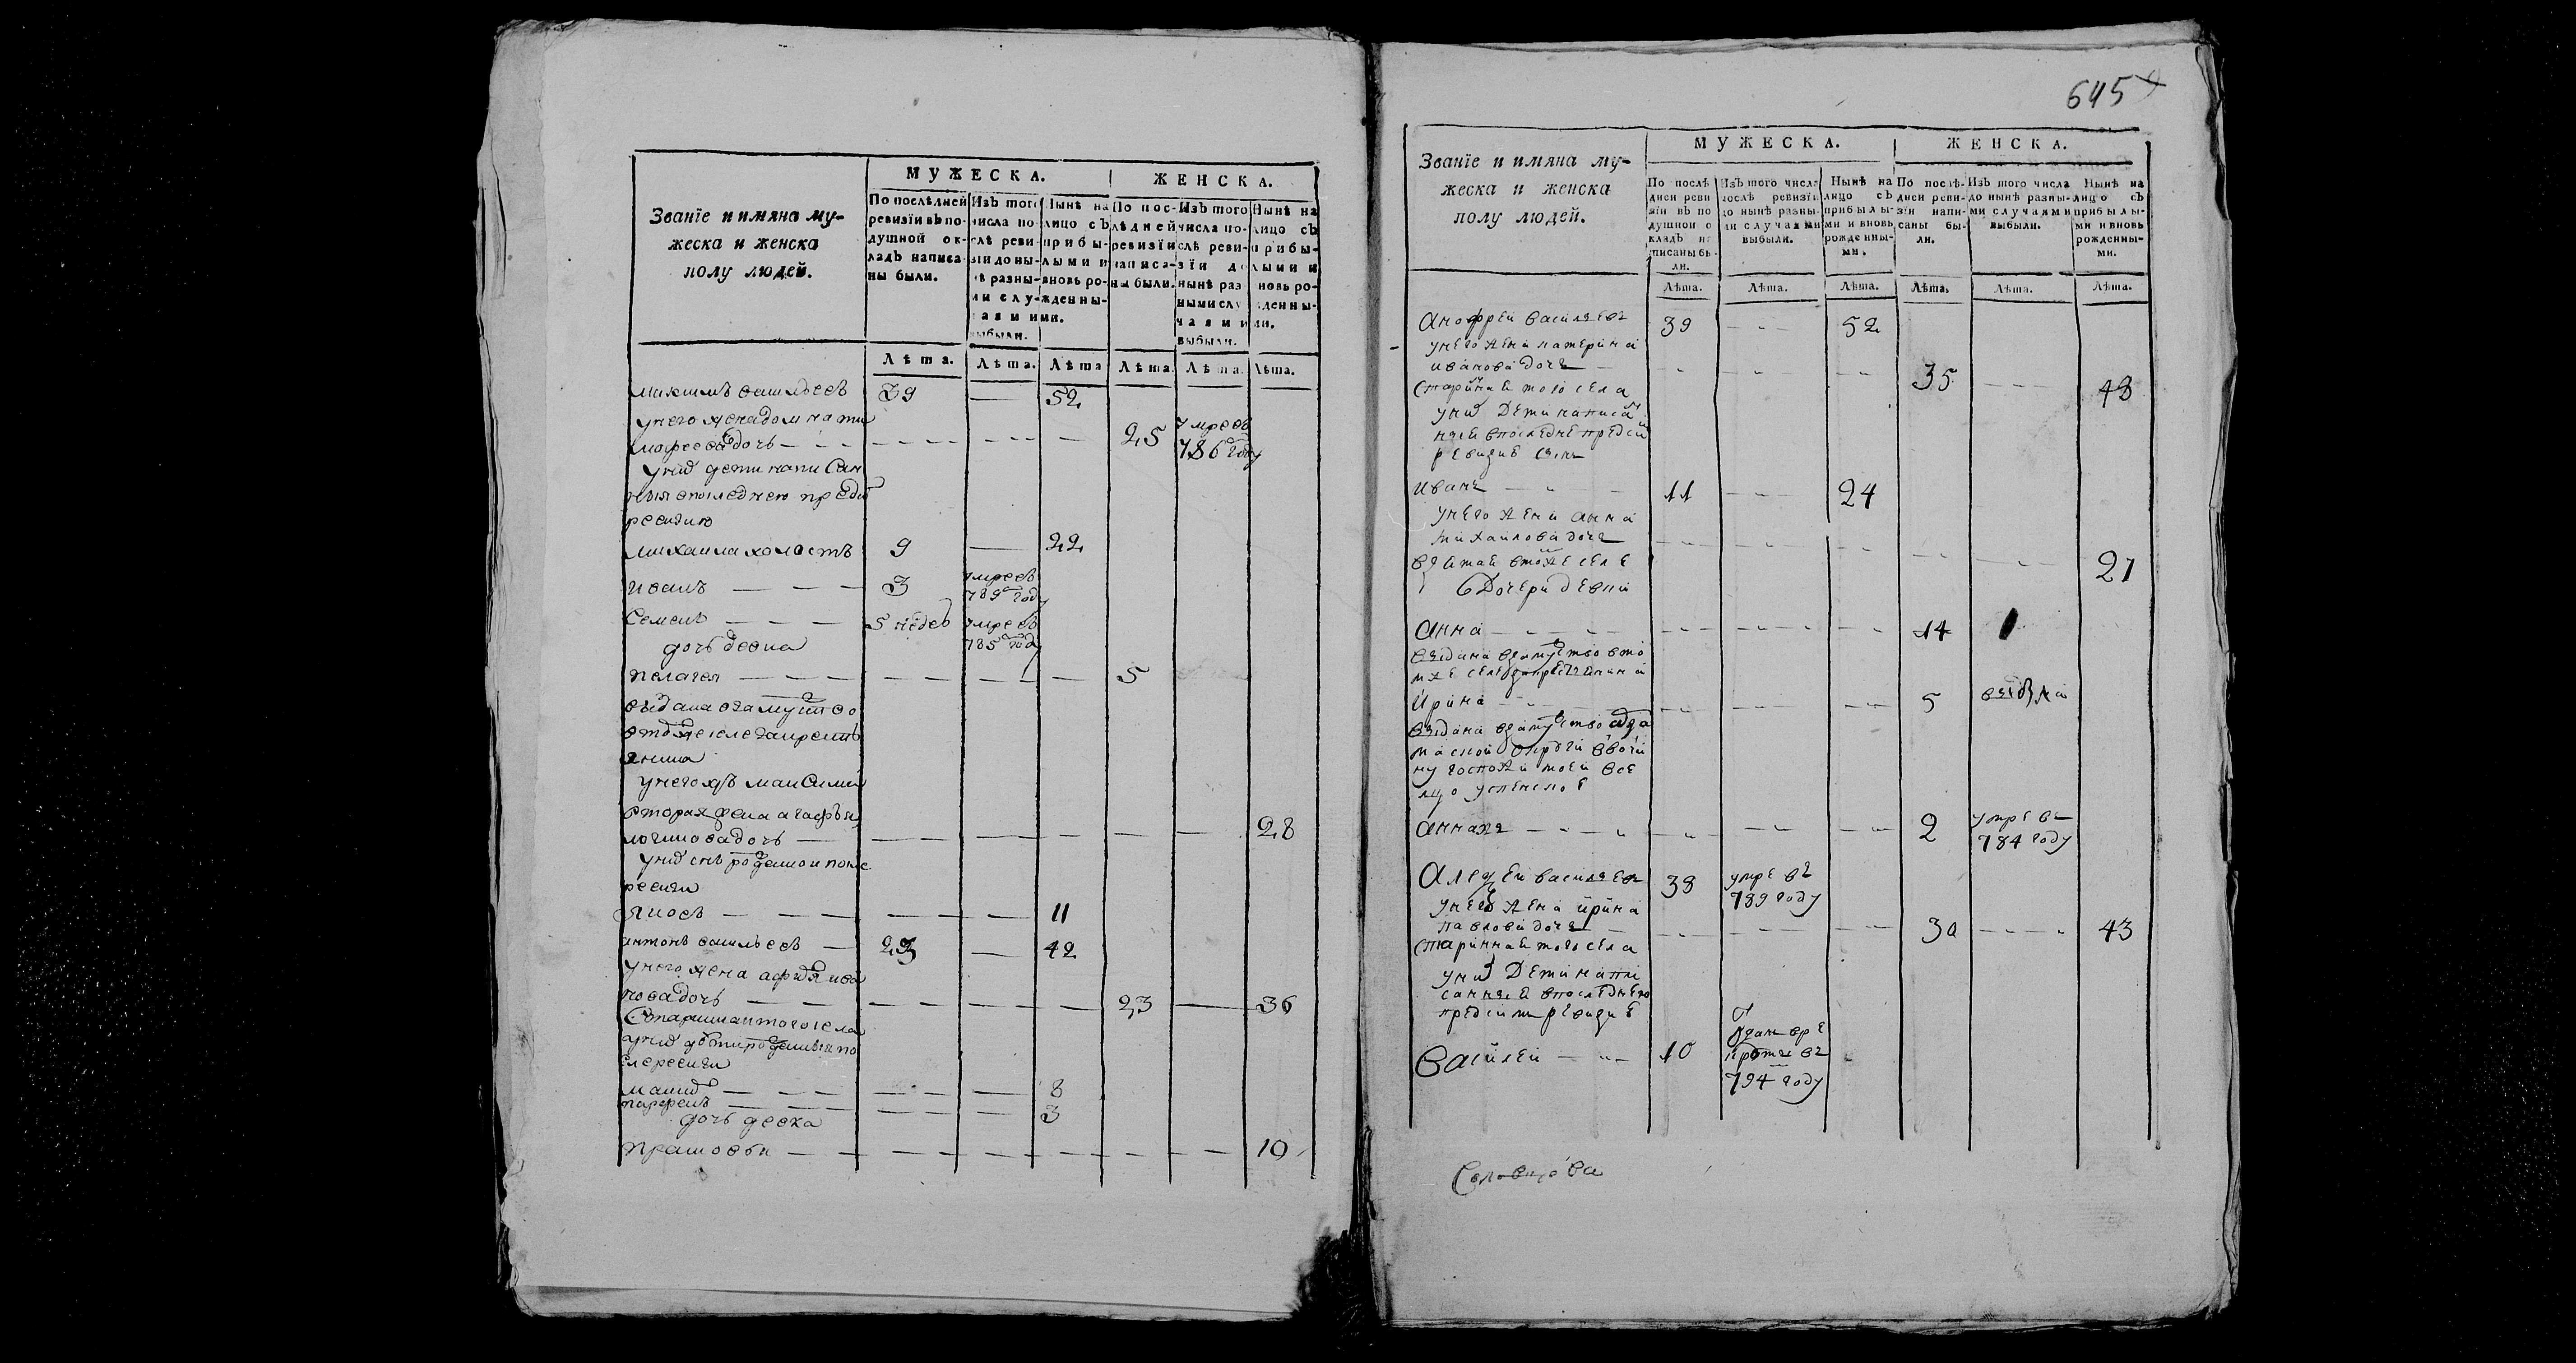 Званіе и имяна му-
жеска и женска
полу людей.
МУЖЕСКА.
ЖЕНСКА.
По послѣдней
ревизіи въ по-
душной ок-
ладъ написа-
ны были.
Изъ того
числа по-
слѣ реви-
зіи до ны-
нѣ разны-
ми слу-
чаями
выбыли.
Нынѣ на
лицо съ
прибы-
лыми и
вновь ро-
жденны-
ми.
По пос-
лѣдней
ревизіи
написа-
ны были.
Изъ того
числа по-
слѣ реви-
зіи до
нынѣ раз
ными слу
чаями
выбыли.
Нынѣ на
лицо съ
прибы-
лыми и
вновь ро-
жденны-
ми.
Лѣта. Лѣта. Лѣта Лѣта. Лѣта. Лѣта.
максимъ васильевъ 39 — 52
унего жена домна ти
мофеева дочь 25 умре въ
786 году
унид дети написан
ныя впоследнею пред
ревизию
михаила холостъ 9 — 22
иванъ — — — 3 умре въ
789 году
Семенъ — — — 5 недев умре въ
785 году
дочь девка
пелагея — — — 5
выдана взамуство
втом же селе закрестъ
янина
унегожъ максима
вторая жена агафья
логинова дочь — 28
унид снъ рожденой после
ревизи
яковъ — — — 11
антонъ васильевъ — 23 — 42
унего жена афи
нова дочь — — 23 — 36
Старинная того села
унид дети рожденыя по
сле ревизи
8
парфенъ — — — 3
дочь девка
прасковья — 10
645
Званіе и имяна му-
жеска и женска
полу людей.
МУЖЕСКА.
ЖЕНСКА.
По послѣ
дней реви
зіи въ по
душной о
кладъ на
писаны бы-
ли.
Изъ того числа
послѣ ревизіи
до нынѣ разны-
ми случаями
выбыли.
Нынѣ на
лицо съ
прибылы-
ми и вновь
рожденны-
ми.
По послѣ-
дней реви-
зіи напи-
саны бы-
ли.
Изъ того числа
до нынѣ разны-
ми случаями
выбыли.
Нынѣ на
лицо съ
прибылы-
ми и вновь
рожденны-
ми.
Лѣта. Лѣта. Лѣта. Лѣта. Лѣта. Лѣта.
Анофреи василевъ 39 — 52
унего жена катерина
иванова дочь 35 — 48
старинная того села
унид дети написа
ныя впоследне предси
ревизие снъ
иванъ — 11 — 24
унего жена анна
михаилова дочь
взятая втомже селе 27
дочери девки
Анна — 14
выдана взамуство вто
мже селе закрестьянина
Ирина — 5 выдана
выдана взамуство арза
маской округи ввочи
ну госпожи моей все
лцо успенское
Аннахъ — 2 умре въ
784 году
Алексеи василевъ 38 умре въ
789 году
унего жена ирина
павлова дочь — 30 — 43
старинная того села
унид дети напи
санныя впоследнею
предсим ревизие
Василеи — 10 Одан вре
круты въ
794 году